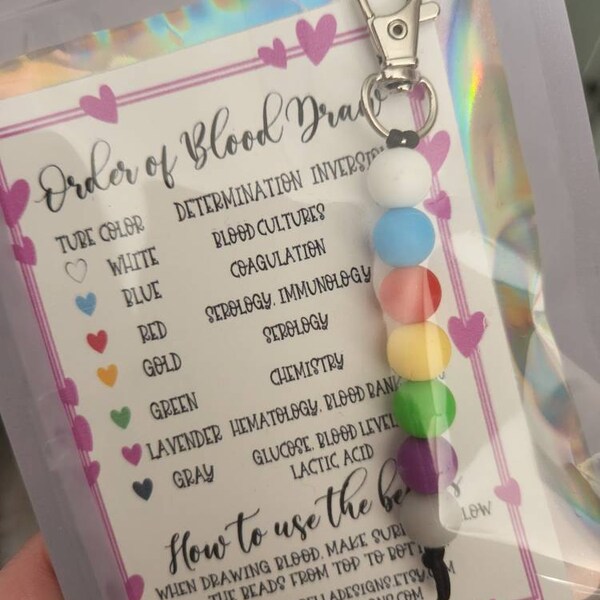 Order of Blood Draw
TUBE COLOR DETERMINATION INVERSION
WHITE BLOOD CULTURES
BLUE COAGULATION
RED SEROLOGY, IMMUNOLOGY
GOLD SEROLOGY
GREEN CHEMISTRY
LAVENDER HEMATOLOGY, BLOOD BANK
GRAY GLUCOSE, BLOOD LEVEL
LACTIC ACID
How to use the
WHEN DRAWING BLOOD, MAKE SURE
THE BEADS FROM TOP TO